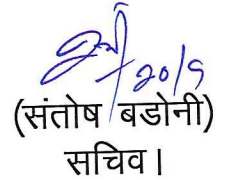 20/9
(संतोष बडोनी)
सचिव।